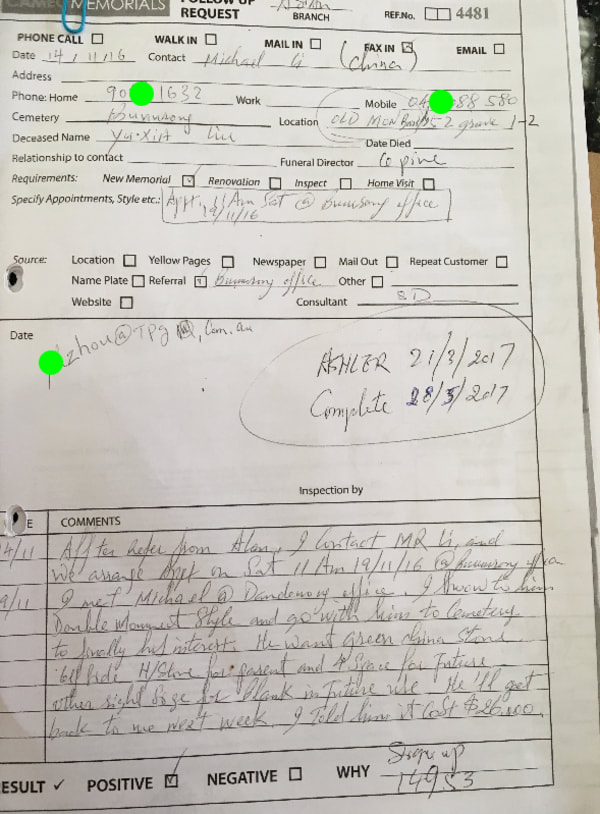 MEMORIALS
REQUEST
BRANCH
REF.No. 4481
PHONE CALL WALK IN MAIL IN FAX IN EMAIL
Date 14/11/16 Contact Michael Li (China)
Address
Phone: Home 90 1632 Work Mobile 04 88 580
Cemetery Bunurong Location OLD MON 52 grave 1-2
Deceased Name Yu-Xia Liu Date Died
Relationship to contact Funeral Director Le pine
Requirements: New Memorial Renovation Inspect Home Visit
Specify Appointments, Style etc.: Appt. 11 Am Sat @ Bunurong office
19/11/16
Source: Location Yellow Pages Newspaper Mail Out Repeat Customer
Name Plate Referral Bunurong office Other
Website Consultant SD
Date
zhou@TPg.Com.au
ASHLER 21/3/2017
Complete 28/5/2017
Inspection by
E COMMENTS
4/11 After from Alan, I Contact MR Li, and
We arrange Appt on Sat 11 Am 19/11/16 @ Bunurong office
9/11 I met Michael @ Dandenong office. I show to him
Double Monument Style and go with him to Cemetery
to finally his interest. He want Green china Stone
H/Stone for parent and Space for Future
other right for Blank in Future use He'll get
back to me next week. I Told him it Cost $26.800.
RESULT ✓ POSITIVE NEGATIVE WHY Sign up
14953